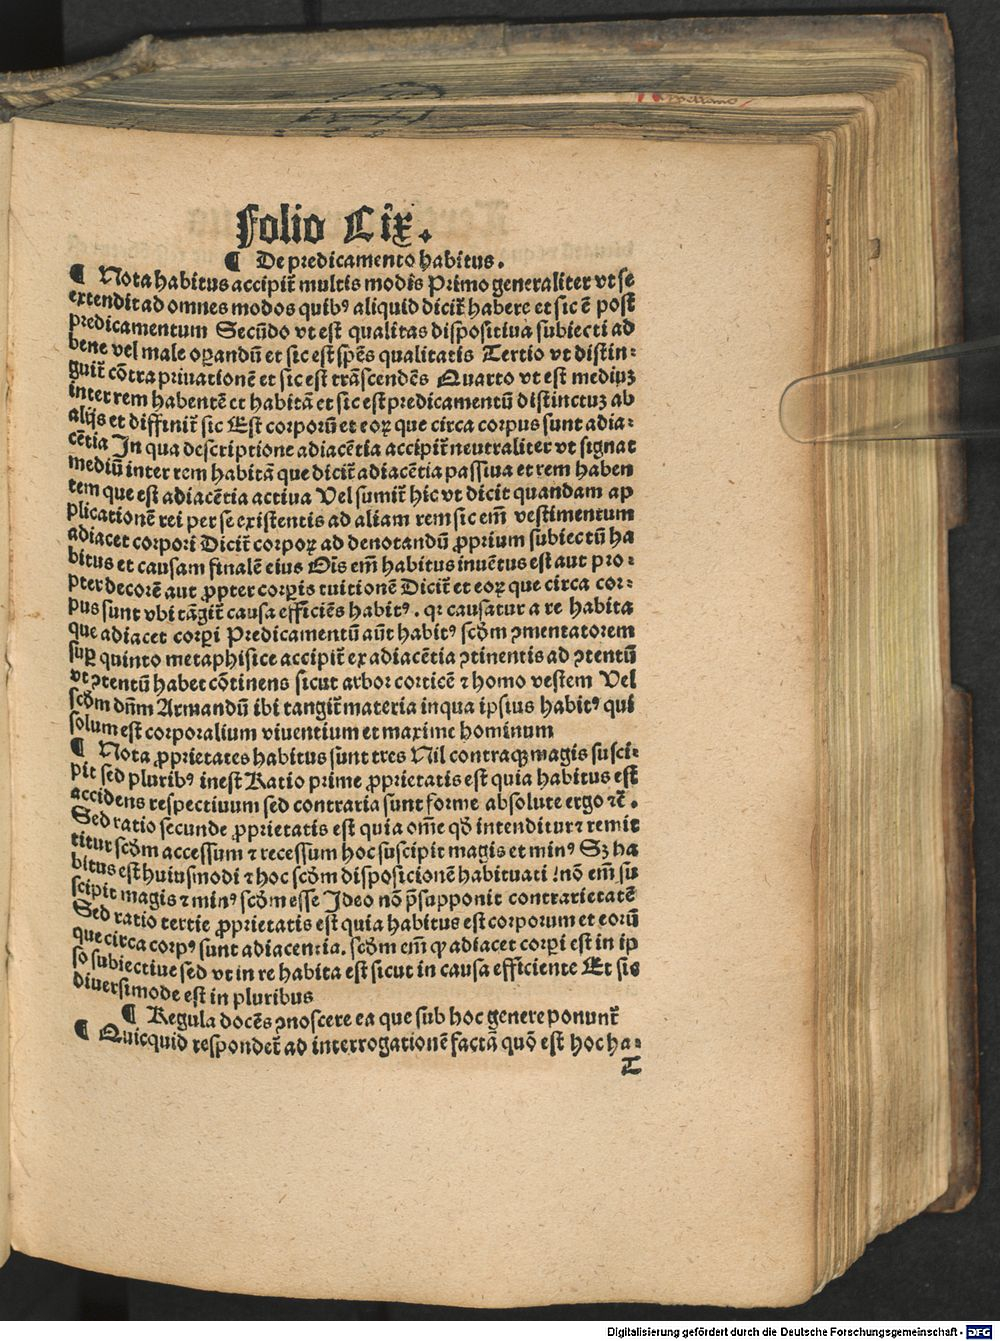 Folio Lix.
¶ De predicamento habitus.
¶ Nota habitus accipit᷑ multis modis Primo generaliter vt se
extendit ad omnes modos quibꝰ aliquid dicit᷑ habere et sic ē post
predicamentum Secūdo vt est qualitas dispositiua subiecti ad
bene vel male oꝑandū et sic est spēs qualitatis Tertio vt distin⸗
guit᷑ cōtra priuationē et sic est trāscendēs Quarto vt est mediuꝫ
inter rem habentē et habitā et sic est predicamentū distinctuꝫ ab
alijs et diffinit᷑ sic Est corporū et eoꝝ que circa corpus sunt adia⸗
cētia In qua descriptione adiacētia accipit᷑ neutraliter vt signat
mediū inter rem habitā que dicit᷑ adiacētia passiua et rem haben
tem que est adiacētia actiua Vel sumit᷑ hic vt dicit quandam ap
plicationē rei per se existentis ad aliam rem sic em̄ vestimentum
adiacet corpori Dicit᷑ corpoꝝ ad denotandū ꝓprium subiectū ha
bitus et causam finalē eius Oīs em̄ habitus inuētus est aut pro⸗
pter decorē aut ꝓpter corpīs tuitionē Dicit᷑ et eoꝝ que circa cor⸗
pus sunt vbi tāgit᷑ causa efficiēs habitꝰ. qr causatur a re habita
que adiacet corpi Predicamentū aūt habitꝰ scd̄m ꝯmentatorem
suꝑ quinto metaphisice accipit᷑ ex adiacētia ꝯtinentis ad ꝯtentū
vt ꝯtentū habet cōtinens sicut arbor corticē ⁊ homo vestem Vel
scd̄m dn̄m Armandū ibi tangit᷑ materia in qua ipsius habitꝰ qui
solum est corporalium viuentium et maxime hominum
¶ Nota ꝓprietates habitus sunt tres Nil contraqꝫ magis susci⸗
pit sed pluribꝰ inest Ratio prime ꝓprietatis est quia habitus est
accidens respectiuum sed contraria sunt forme absolute ergo ⁊c̄.
Sed ratio secunde ꝓprietatis est quia om̄e qd̄ intenditur ⁊ remit
titur scd̄m accessum ⁊ recessum hoc suscipit magis et minꝰ Sꝫ ha
bitus est huiusmodi ⁊ hoc scd̄m disposicionē habituati ! nō em̄ su
scipit magis ⁊ minꝰ scd̄m esse Ideo nō p̄supponit contrarietatē
Sed ratio tertie ꝓprietatis est quia habitus est corporum et eorū
que circa corpꝰ sunt adiacentia. scd̄m em̄ ꝙ adiacet corpi est in ip
so subiectiue sed vt in re habita est sicut in causa efficiente Et sic
diuersimode est in pluribus
¶ Regula docēs ꝯnoscere ea que sub hoc genere ponunt᷑
¶ Quicquid respondet᷑ ad interrogationē factā quō est hoc ha⸗
T
Digitalisierung gefördert durch die Deutsche Forschungsgemeinschaft - DFG